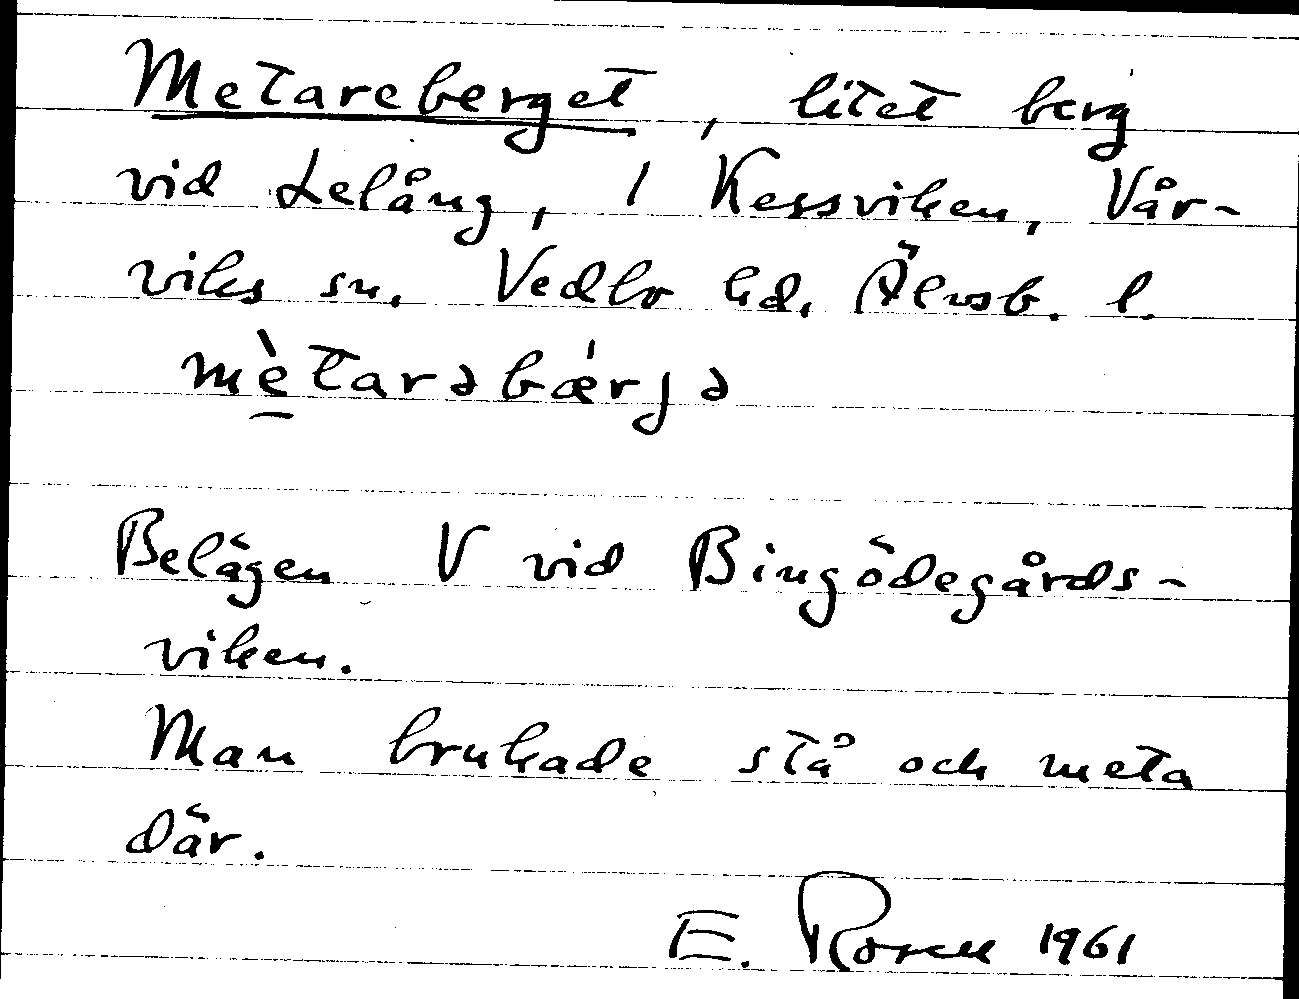 Metareberget, litet berg
vid Lelång, / Kessviken, Vår-
viks sn. Vedbo hd, Älvsb. l.
mè̱tarəbǽrjə
Belägen V vid Bingödegårds-
viken.
Man brukade stå och meta
där.
E. Rosell 1961